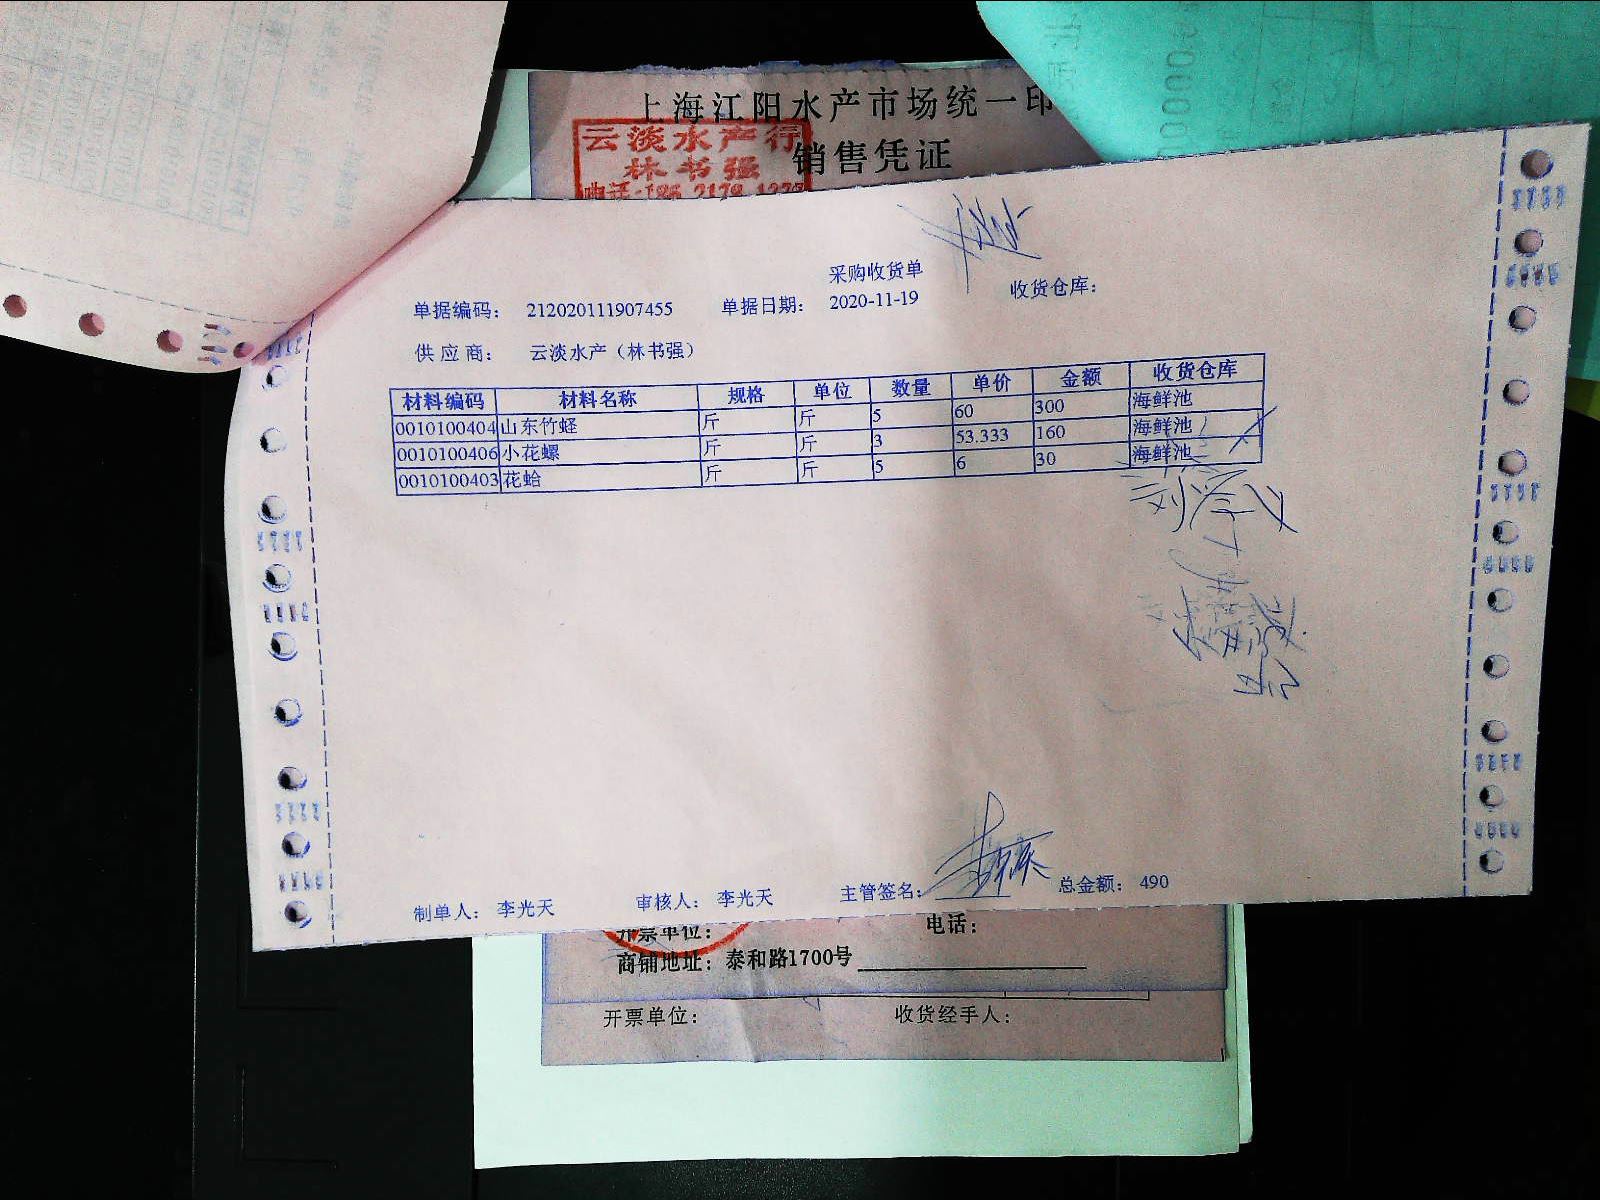 上海江阳水产市场统一印
云淡水产行
销售凭证
林书强
采购收货单
单据编码： 212020111907455 单据日期： 2020-11-19 收货仓库：
供应商： 云淡水产（林书强）
材料编码 材料名称 规格 单位 数量 单价 金额 收货仓库
0010100404 山东竹蛏 斤 斤 5 60 300 海鲜池
0010100406 小花螺 斤 斤 3 53.333 160 海鲜池
0010100403 花蛤 斤 斤 5 6 30 海鲜池
制单人： 李光天 审核人： 李光天 主管签名： 总金额： 490
开票单位： 电话：
商铺地址： 泰和路1700号
开票单位： 收货经手人：